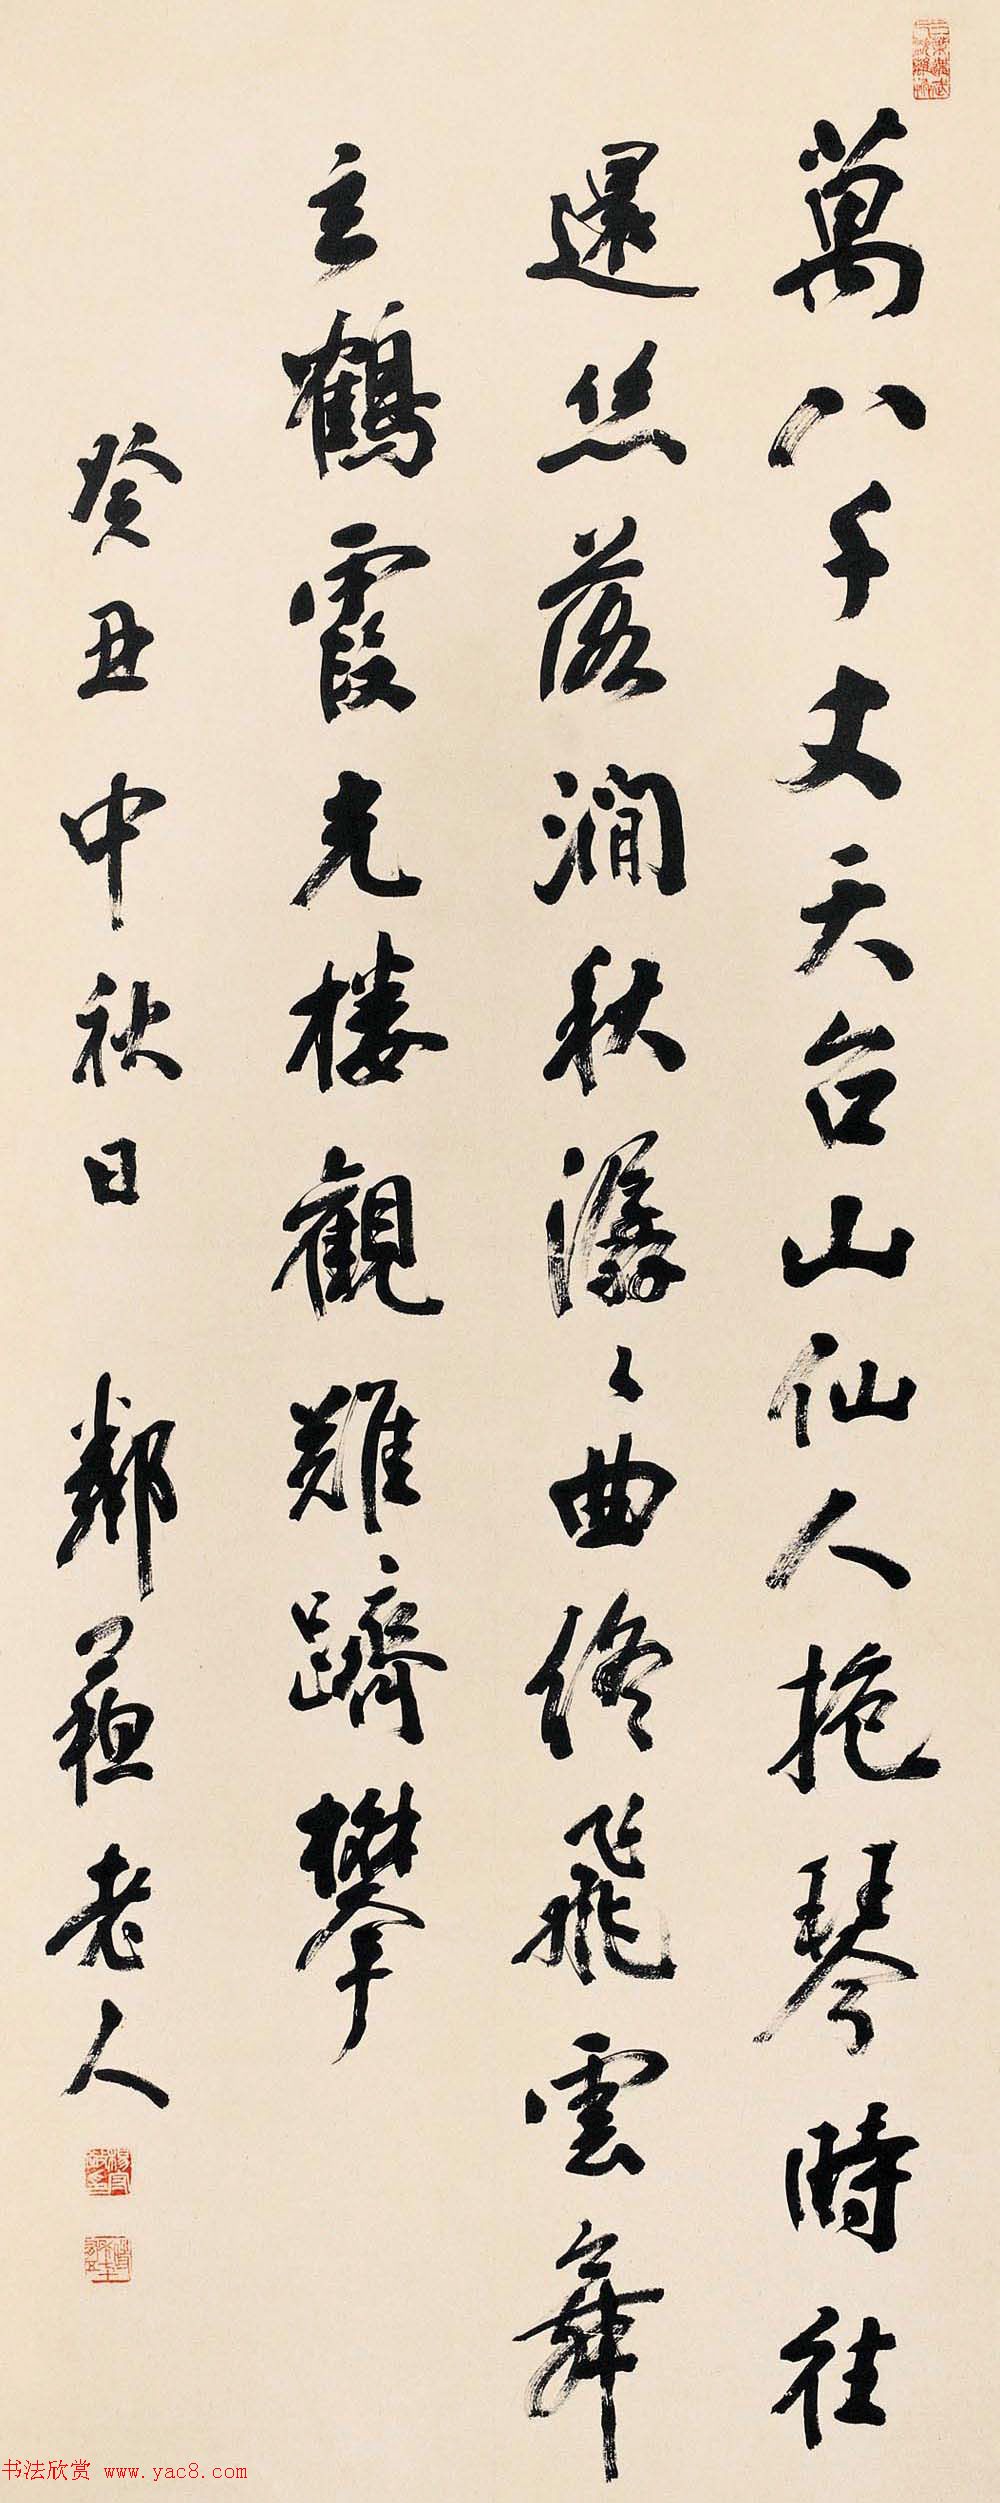 萬八千丈天台山仙人抱琴時往
還絲落澗秋潺〻曲終飛雲舞
玄鶴霞光楼觀難躋攀
癸丑中秋日 鄰蘇老人
书法欣赏 www.yac8.com